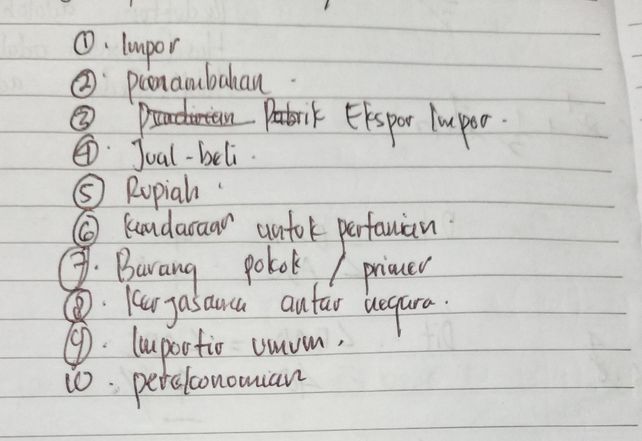 ①. Impor
② Penambahan.
③ Pabrik Ekspor Impor.
④. Jual-beli.
⑤ Rupiah.
⑥ Kendaraan untuk pertanian.
⑦. Barang pokok / primer
⑧. Kerjasama antar negara.
⑨. Importir umum.
10. perekonomian